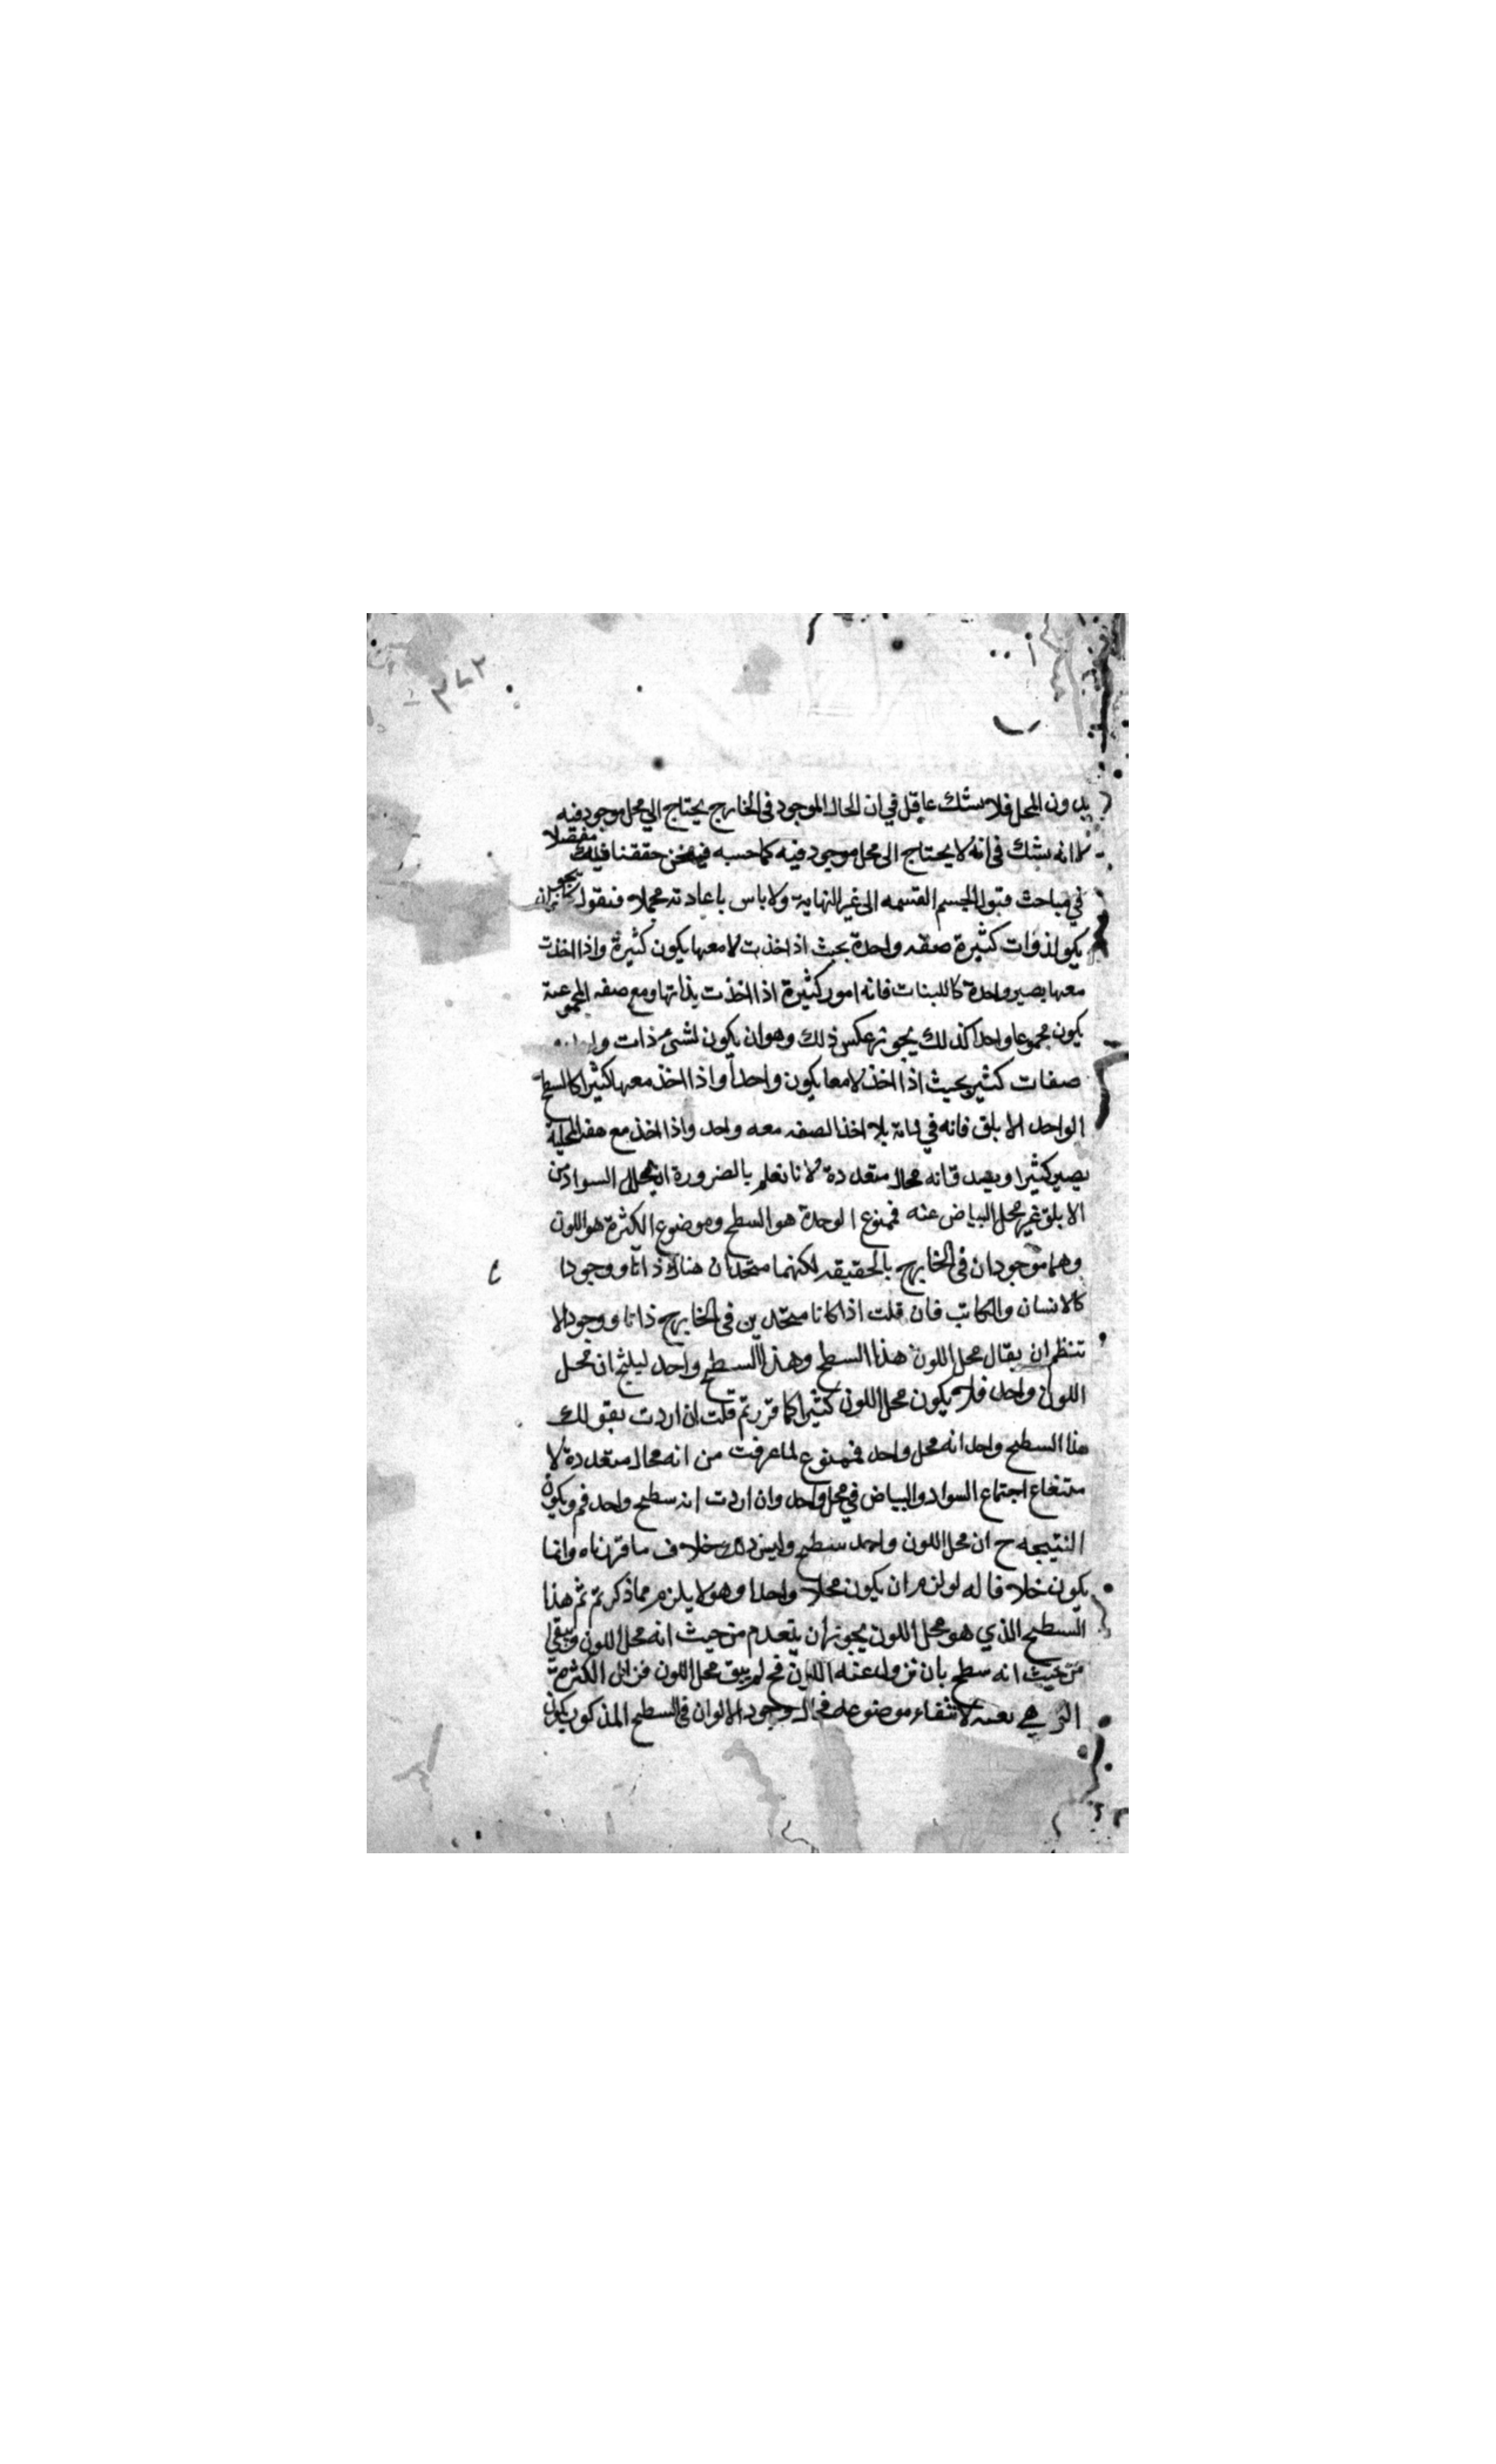 ٣٧٢
بدون المحل فلا يشك عاقل في ان الحال الموجود فى الخارج يحتاج الى محل موجود فيه
لا انه يشك فى انه لا يحتاج الى محل موجود فيه كما حسبه فنحن حققنا ذلك مفصلا
في مباحث قبول الجسم القسمه الى غير النهاية ولا باس باعادته مجملا فنقول كما يجوز ان
يكون لذوات كثيرة صفه واحدة بحيث اذا اخذت لا معها يكون كثيرة واذا اخذت
معها يصير واحدة كاللبنات فانه امور كثيرة اذا اخذت بذاتها ومع صفه المجموعية
يكون مجموعا واحدا كذلك يجوز عكس ذلك وهو ان يكون لشئ ذات واحدة و
صفات كثير بحيث اذا اخذ لا معها يكون واحدا واذا اخذ معها كثيرا كالسطح
الواحد الابلق فانه في ذاته بلا اخذ الصفه معه واحد واذا اخذ مع صفة المحلية
يصير كثيرا فانه محال متعددة لانا نعلم بالضرورة ان محل السواد من
الابلق غير محل البياض عنه فموضوع الوحدة هو السطح وموضوع الكثرة هو اللون
وهما موجودان فى الخارج بالحقيقه لكنهما متحدان هناك ذاتا ووجودا
كالانسان والكاتب فان قلت اذا كانا متحدين فى الخارج ذاتا ووجودا لا
تنظم ان يقال محل اللون هذا السطح وهذا السطح واحد لينتج ان محل
اللون واحد فلا يكون محل اللون كثيرا كما قررتم قلت ان اردت بقولك
هذا السطح واحد انه محل واحد فممنوع لما عرفت من انه محال متعددة لا
متناع اجتماع السواد والبياض في محل واحد وان اردت انه سطح واحد فم ويكون
النتيجه ح ان محل اللون واحد سطح وليس ذلك خلاف ما قررناه وانما
يكون خلافا له لو لزم ان يكون محلا واحدا وهو لا يلزم مما ذكرتم ثم هذا
السطح الذي هو محل اللون يجوز ان ينعدم من حيث انه محل اللون ويبقى
من حيث انه سطح بان تزول عنه اللون فح لم يبق محل اللون فزالت الكثرة
التى هي لانتفاء موضوعه فحال وجود الالوان فى السطح المذكور يكون